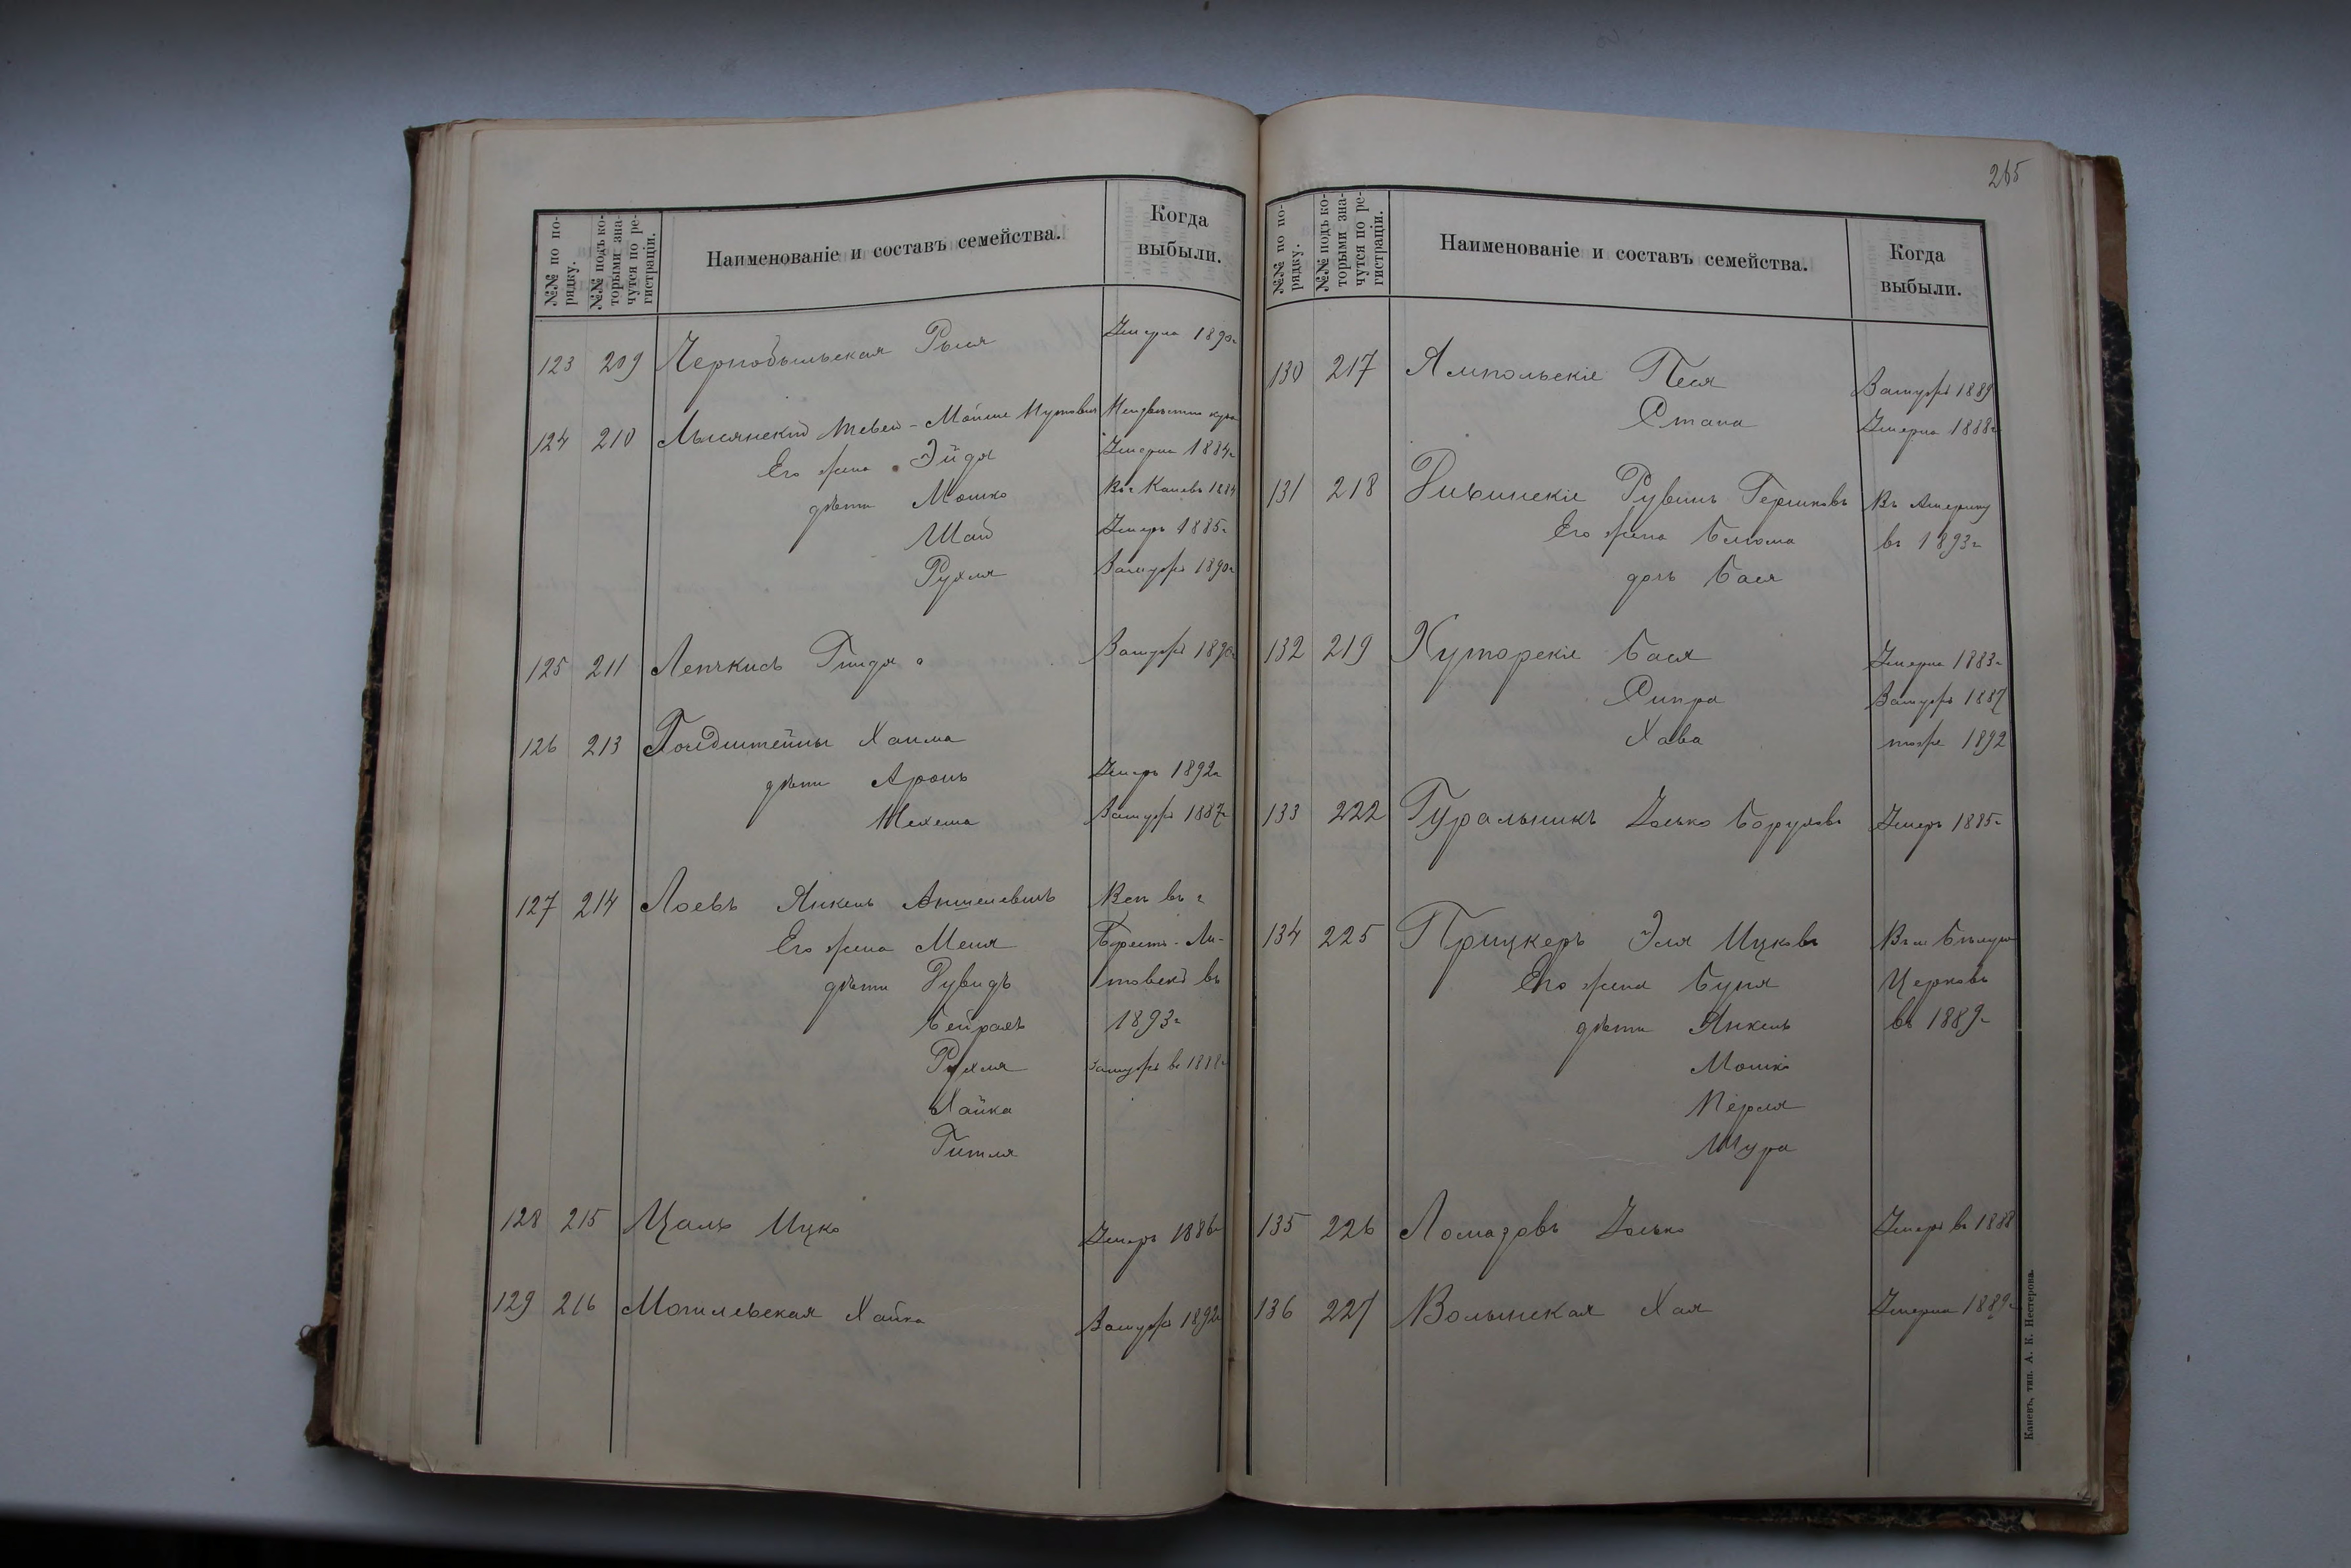 №№ по по-
рядку.
№№ подъ ко-
торыми зна-
чутся по ре-
гистраціи.
Наименованіе и составъ семейства.
Когда
выбыли.
123 209 Чернобыльская Рыся Умерла 1890г
124 210 Лысянскій Тевел-Мойше Ицковъ Неизвѣстно куда
Его жена Эйдя Умерла 1884г
дѣти Мошко Въ г Каневъ 1884
Шая Умеръ 1885г
Рухля Замужъ 1890г
125 211 Лепкись Гинда Замужъ 1890г
126 213 Голдштейны Хаима
дѣти Аронъ Умеръ 1892г
Мехема Замужъ 1887г
127 214 Лоевъ Янкель Аншелевичъ Всѣ въ г
Его жена Меня Брестъ-Ли-
дѣти Дувидъ товскъ въ
Бейрахъ 1893г
Рухля Замужъ въ 1888г
Хайка
Гитля
128 215 Цаль Ицко Умеръ 1886г
129 216 Могилевская Хайка Замужъ 1892г
265
№№ по по-
рядку.
№№ подъ ко-
торыми зна-
чутся по ре-
гистраціи.
Наименованіе и составъ семейства.
Когда
выбыли.
130 217 Ямпольскіе Песя Замужъ 1889
Стана Умерла 1888г
131 218 Дивинскіе Рувинъ Гершковъ Въ Америку
Его жена Блюма въ 1893г
дочь Бася
132 219 Хуторскіе Бася Умерла 1883г
Сипра Замужъ 1887
Хава тоже 1892
133 222 Гуральникъ Иосько Боруховъ Умеръ 1885г
134 225 Прицкеръ Эля Ицковъ Въ м Бѣлую
Его жена Буня Церковь
дѣти Янкель въ 1889г
Мошко
Перля
Шура
135 226 Ломазовъ Иосько Умеръ въ 1888
136 227 Волынская Хая Умерла 1889г
Каневъ, тип. А. К. Нестерова.